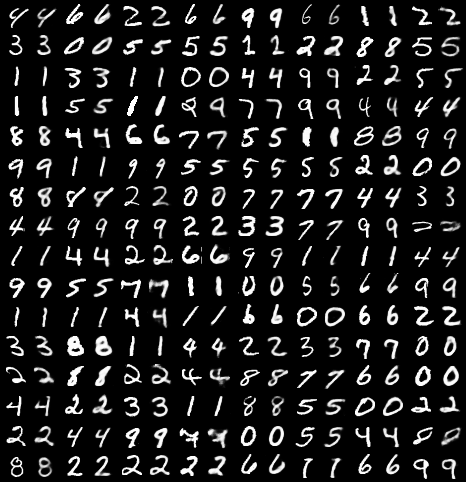 4 4 6 6 2 2 6 6 9 9 6 6 1 1 2 2
3 3 0 0 5 5 5 5 1 1 2 2 8 8 5 5
1 1 3 3 1 1 0 0 4 4 9 9 2 2 5 5
1 1 5 5 1 1 7 7 9 9 4 4 4 4
8 8 4 4 6 6 7 7 5 5 1 1 8 8 9 9
9 9 1 1 9 9 5 5 5 5 5 5 2 2 0 0
8 8 8 8 2 2 0 0 7 7 7 7 4 4 3 3
4 4 9 9 9 9 2 2 3 3 7 7 9 9
1 1 4 4 2 2 6 6 9 9 1 1 1 1 4 4
9 9 5 5 7 7 1 1 0 0 5 5 6 6 9 9
1 1 1 1 4 4 1 1 6 6 0 0 6 6 2 2
3 3 8 8 1 1 4 4 2 2 3 3 7 7 0 0
2 2 8 8 2 2 4 4 8 8 7 7 6 6 0 0
4 4 2 2 3 3 1 1 8 8 5 5 0 0 2 2
2 2 4 4 9 9 0 0 5 5 4 4
8 8 2 2 2 2 2 2 6 6 1 1 6 6 9 9